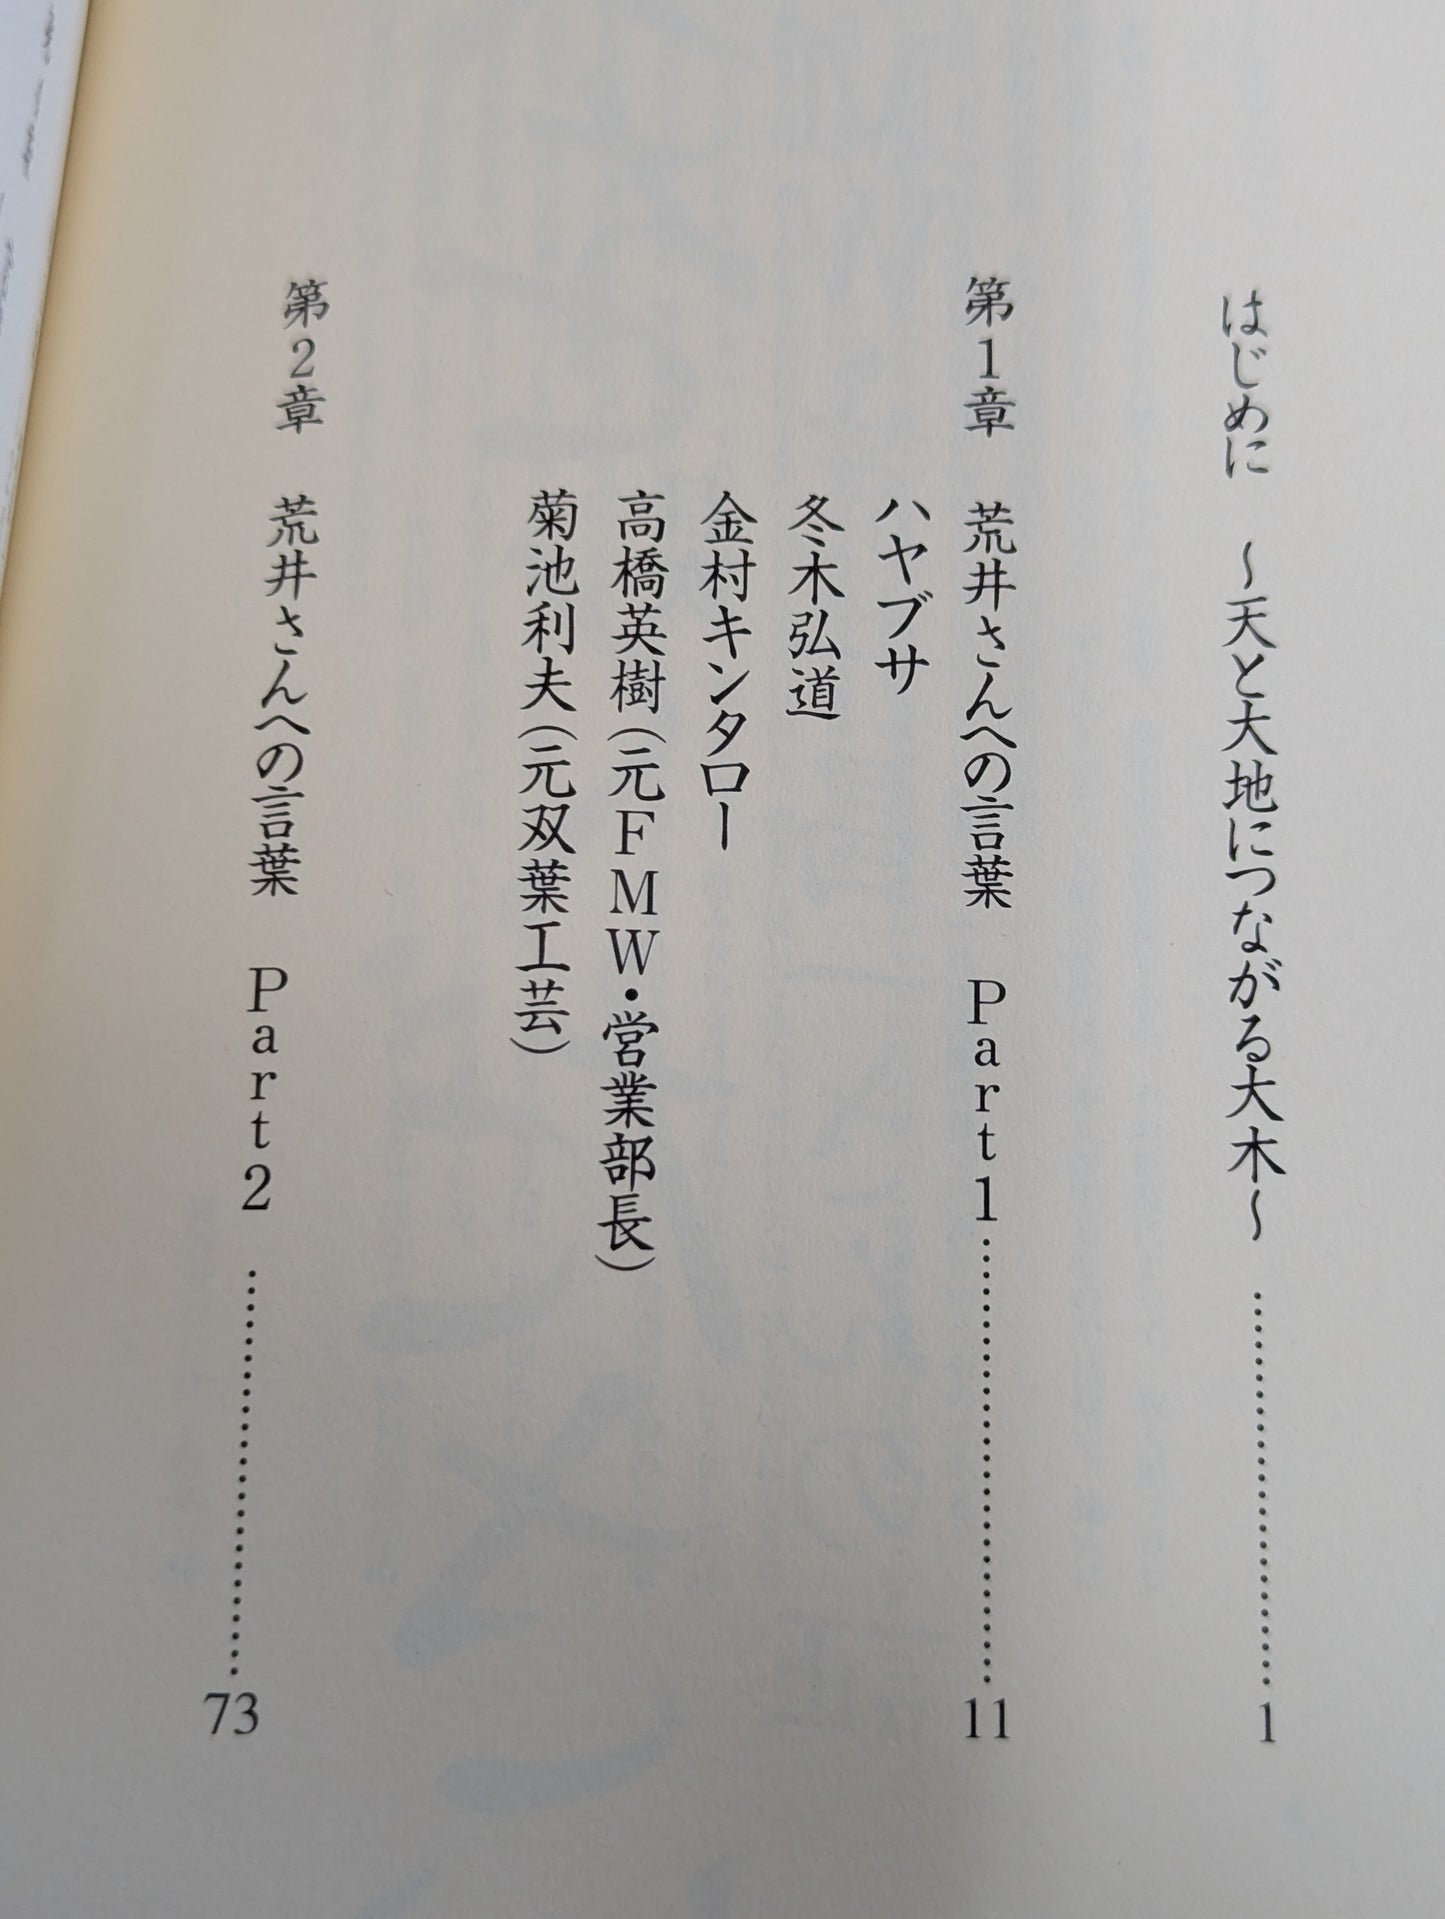 はじめに　～天と大地につながる大木～ ……………………… 1
第1章　荒井さんへの言葉　Part1 ……………………… 11
ハヤブサ
冬木弘道
金村キンタロー
高橋英樹（元FMW・営業部長）
菊池利夫（元双葉工芸）
第2章　荒井さんへの言葉　Part2 ……………………… 73